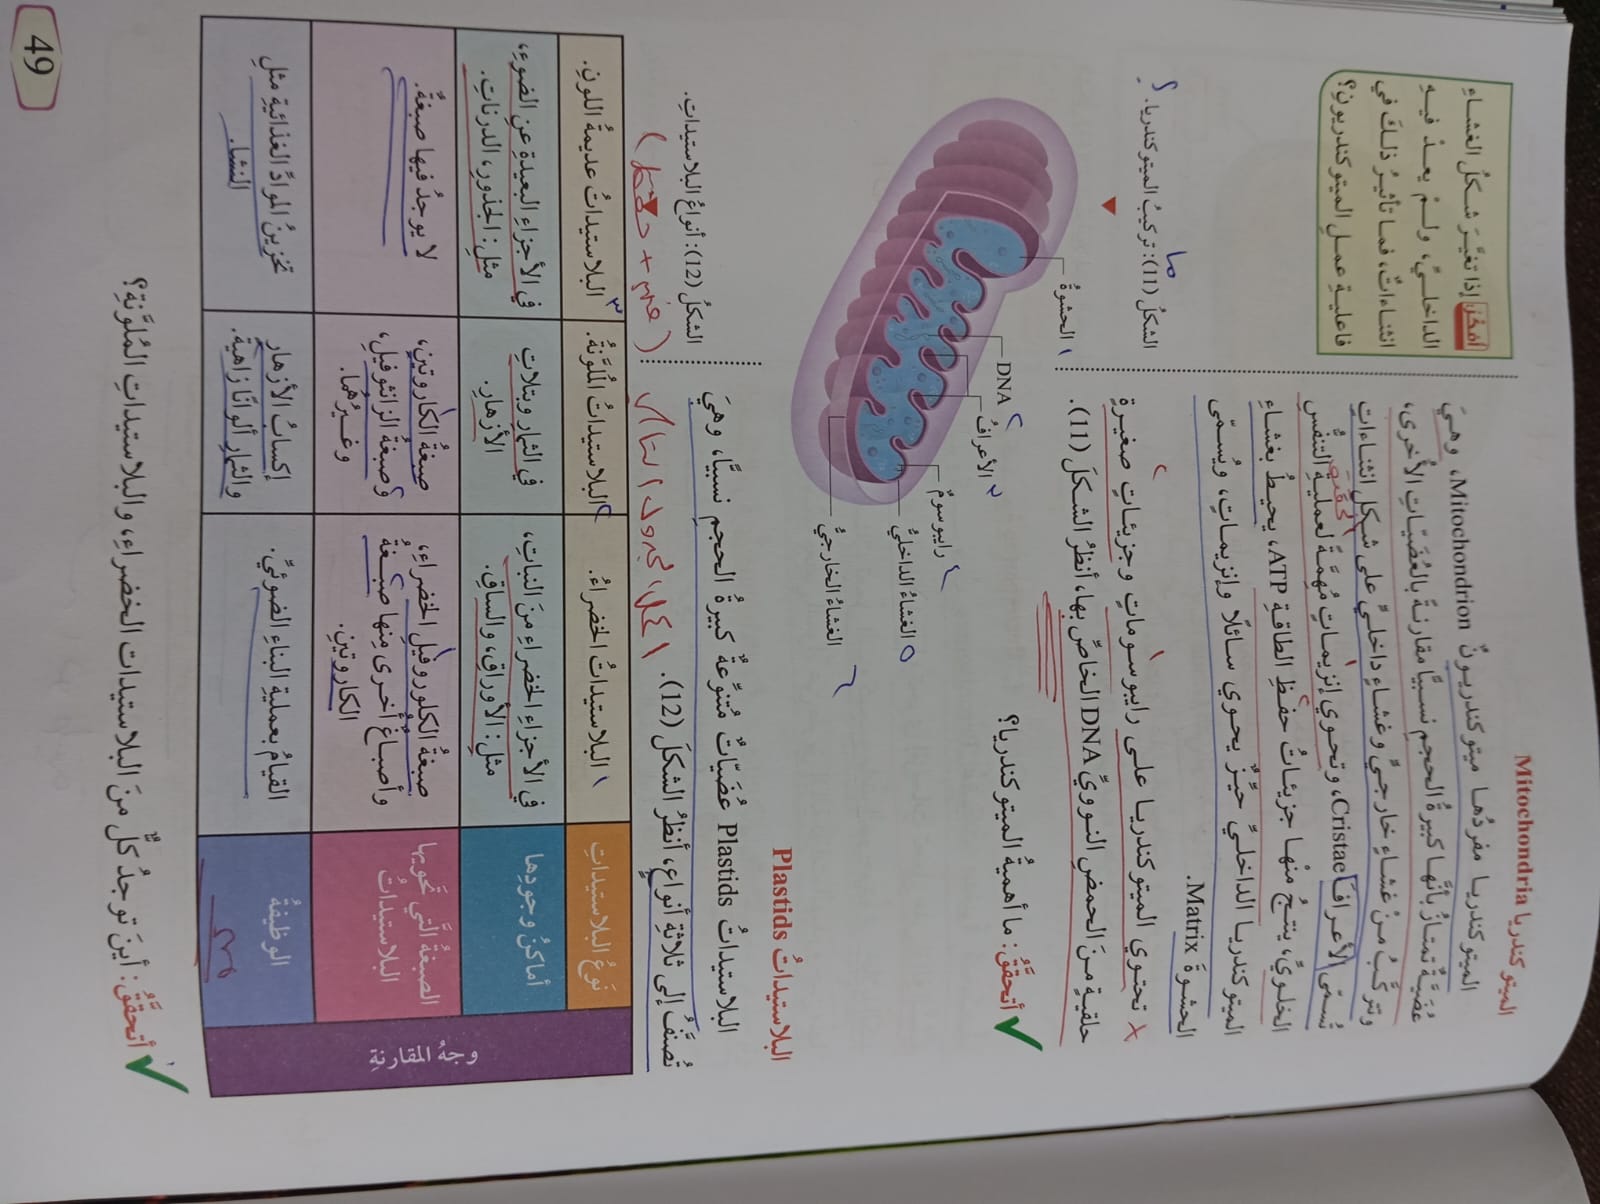 الميتوكندريا Mitochondria
الميتوكندريا مفردُها ميتوكندريونٌ Mitochondrion، وهيَ
عُضَيَّةٌ تمتازُ بأنَّها كبيرةُ الحجمِ نسبيًّا مقارنةً بالعُضَيّاتِ الأُخرى،
وتتركَّبُ منْ غشاءٍ خارجيٍّ وغشاءٍ داخليٍّ على شكلِ انثناءاتٍ
تُسمّى الأعرافَ Cristae، وتحوي إنزيماتٍ مُهمَّةً لعمليةِ التنفُّسِ
الخلويِّ، ينتجُ منْها جزيئاتُ حفظِ الطاقةِ ATP، يحيطُ بغشاءِ
الميتوكندريا الداخليِّ حيِّزٌ يحوي سائلًا وإنزيماتٍ، ويُسمّى
الحشوةَ Matrix.
تحتوي الميتوكندريا على رايبوسوماتٍ وجزيئاتٍ صغيرةٍ
حلقيةٍ منَ الحمضِ النوويِّ DNA الخاصِّ بها، أنظرُ الشكلَ (11).
أتحقَّقُ: ما أهميةُ الميتوكندريا؟
أفكّرُ إذا تغيَّرَ شكلُ الغشاءِ
الداخليِّ، ولمْ يعدْ فيهِ
انثناءاتٌ، فما تأثيرُ ذلكَ في
فاعليةِ عملِ الميتوكندريونِ؟
الشكلُ (11): تركيبُ الميتوكندريا.
ما
؟
الحشوةُ ١
DNA ٢
الأعرافُ ٣
رايبوسومٌ ٤
الغشاءُ الداخليُّ ٥
الغشاءُ الخارجيُّ ٦
البلاستيداتُ Plastids
البلاستيداتُ Plastids عُضَيّاتٌ مُتنوِّعةٌ كبيرةُ الحجمِ نسبيًّا، وهيَ
تُصنَّفُ إلى ثلاثةِ أنواعٍ، أنظرُ الشكلَ (12).
الشكلُ (12): أنواعُ البلاستيداتِ.
وجهُ المقارنةِ
نوعُ البلاستيداتِ
١ البلاستيداتُ الخضراءُ.
٢ البلاستيداتُ المُلوَّنةُ.
٣ البلاستيداتُ عديمةُ اللونِ.
أماكنُ وجودِها
في الأجزاءِ الخضراءِ منَ النباتِ،
مثلِ: الأوراقِ، والساقِ.
في الثمارِ وبتلاتِ
الأزهارِ.
في الأجزاءِ البعيدةِ عنِ الضوءِ،
مثلِ: الجذورِ، الدرناتِ.
الصبغةُ التي تحويها
البلاستيداتُ
صبغةُ الكلوروفيلِ الخضراءُ،
وأصباغٌ أُخرى مِنها صبغةُ
الكاروتينِ.
صبغةُ الكاروتينِ،
وصبغةُ الزانثوفيلِ،
وغيرُهُما.
لا يوجدُ فيها صبغةٌ.
الوظيفةُ
القيامُ بعمليةِ البناءِ الضوئيِّ.
إكسابُ الأزهارِ
والثمارِ ألوانًا زاهيةً.
تخزينُ الموادِّ الغذائيةِ مثلِ
النشا.
أتحقَّقُ: أينَ توجدُ كلٌّ منَ البلاستيداتِ الخضراءِ، والبلاستيداتِ المُلوَّنةِ؟
49